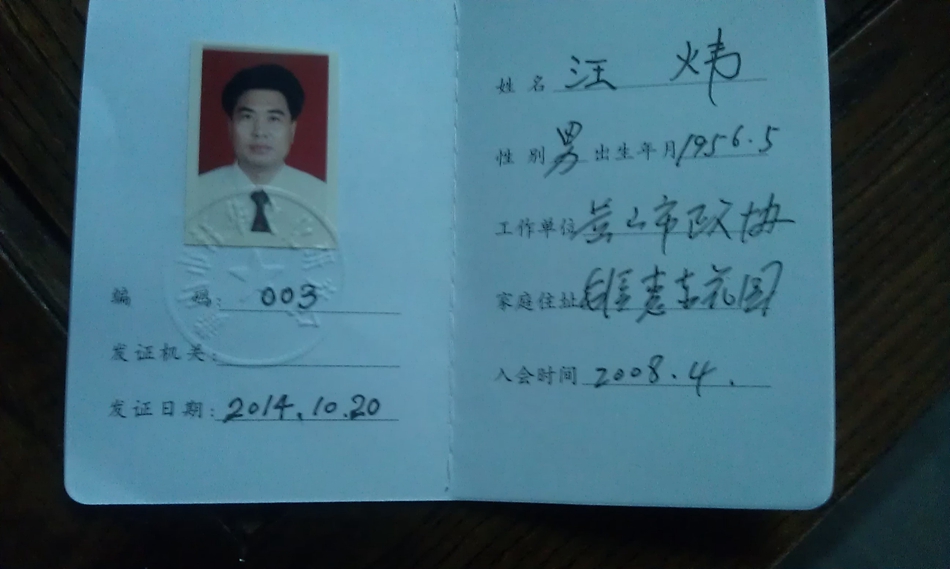 编 号: 003
发证机关:
发证日期: 2014.10.20
姓 名 汪 炜
性 别 男 出生年月 1956.5
工作单位 黄山市政协
家庭住址 花园
入会时间 2008.4.